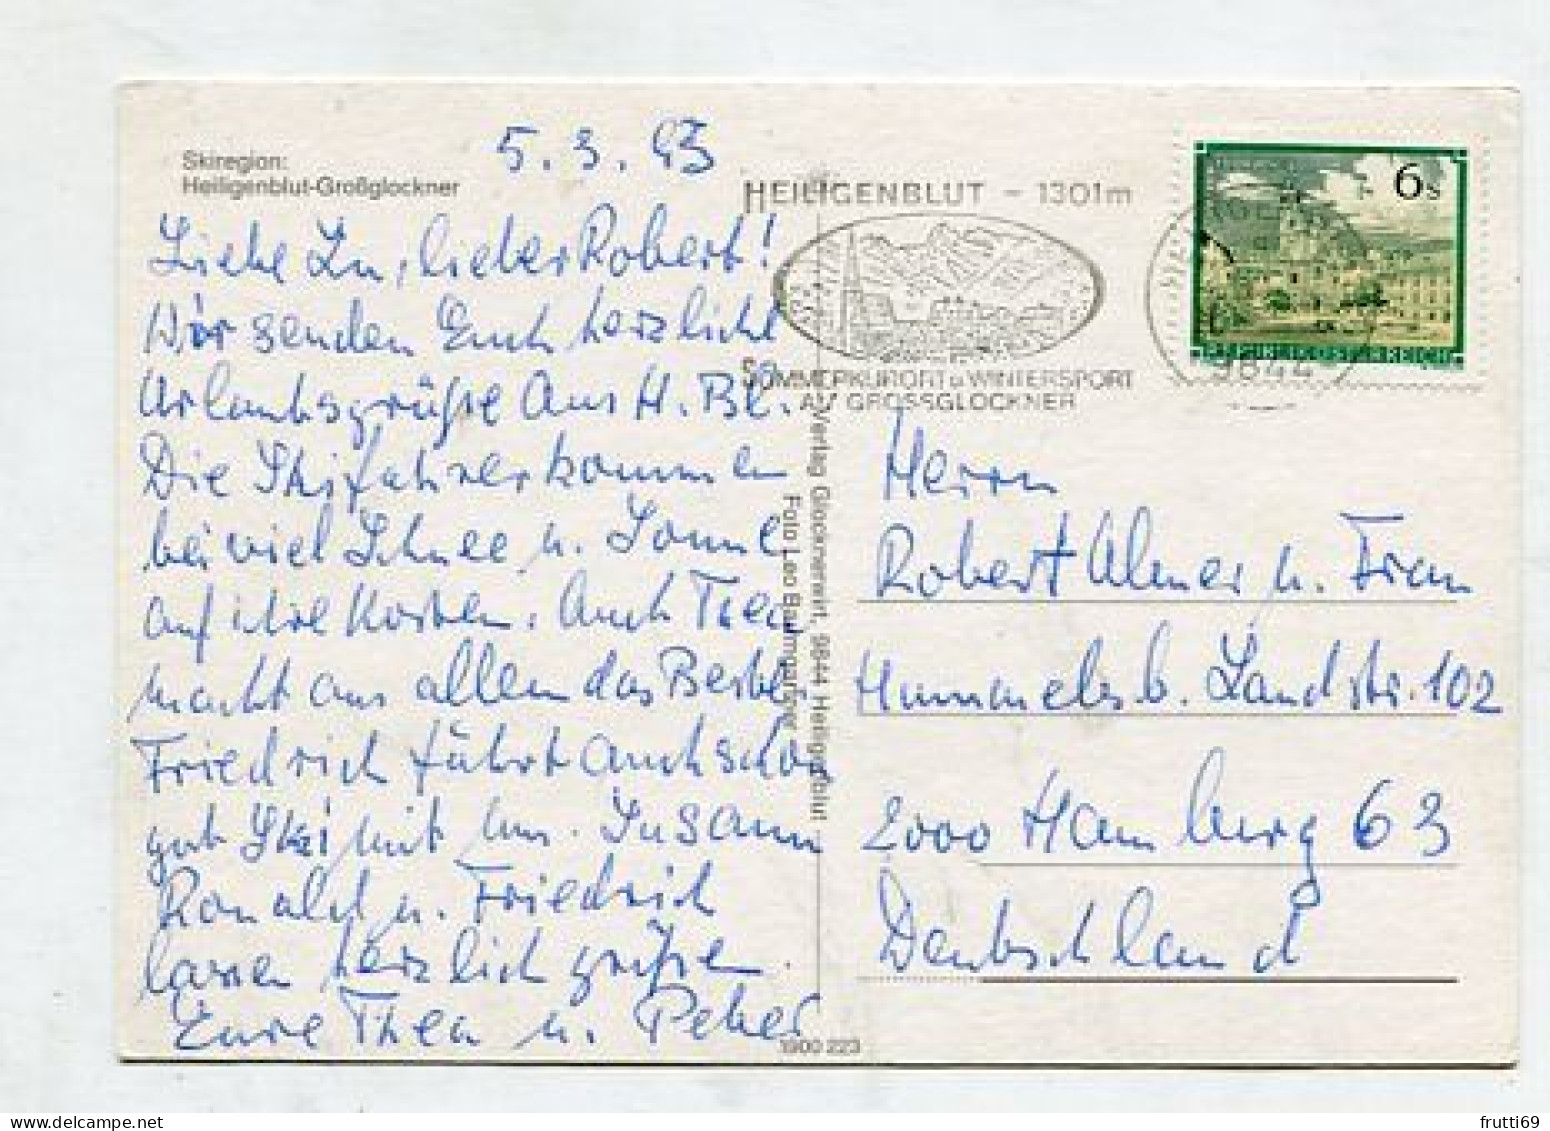 Skiregion:
Heiligenblut-Großglockner
5.3.93
Liebe Lu, lieber Robert!
Wir senden Euch herzliche
Urlaubsgrüße aus H. Bl.
Die Skifahrer kommen
bei viel Schnee u. Sonne
auf ihre Kosten. Auch Thea
macht aus allem das Beste.
Friedrich fährt auch schon
gut Ski mit uns. Susann
Ronald u. Friedrich
lassen herzlich grüßen.
Eure Thea u. Peter
HEILIGENBLUT - 1301m
SOMMERKURORT u. WINTERSPORT
AM GROSSGLOCKNER
9844
6 S
REPUBLIK ÖSTERREICH
Verlag Glocknerwirt, 9844 Heiligenblut
Foto Leo Baumgartner
Herrn
Robert Ulmer u. Frau
Hummelsb. Landstr. 102
2000 Hamburg 63
Deutschland
1900 223
frutti69